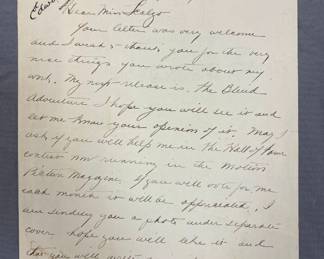 Dear Miss Scalzo
Your letter was very welcome
and I wish to thank you for the very
nice things you wrote about my
work. My next release is The Blind
Adventure I hope you will see it and
let me know your opinion of it. May I
ask if you will help me in the Hall of Fame
contest now running in the Motion
Picture Magazine. If you will vote for me
each month it will be appreciated. I
am sending you a photo under separate
cover hope you will like it and
that you will write